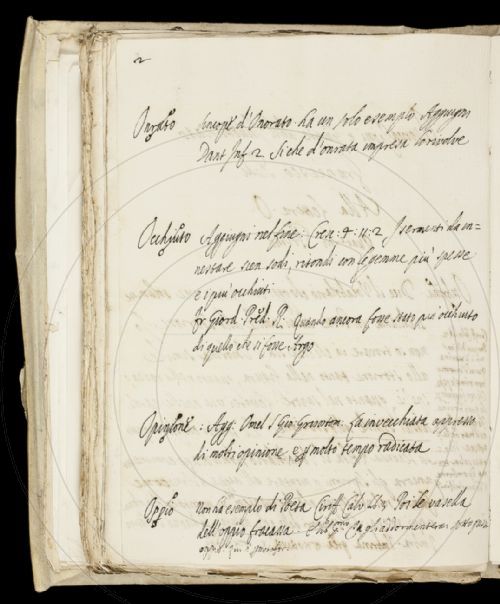 2
Onrato sincope d'Onorato. ha un solo esempio Aggiugni
Dant Inf. 2. Siche d'onrata impresa lo rivolve
Occhiuto Aggiugni nel fine: Cresc. 4. 11. 2 I sermenti da in-
nestare sien sodi, ritondi con le gemme più spesse
e i più occhiuti
fr Giord. Pred. R. Quando ancora fosse stato più occhiuto
di quello che si fosse Argo
Opinione: Agg. Omel S Gio: Grisostom. La invecchiata appresso
di molti opinione, e p molto tempo radicata
Oppio non ha esempio di Poeta Ciriff Calv. Poi le vasella
dell'oppio